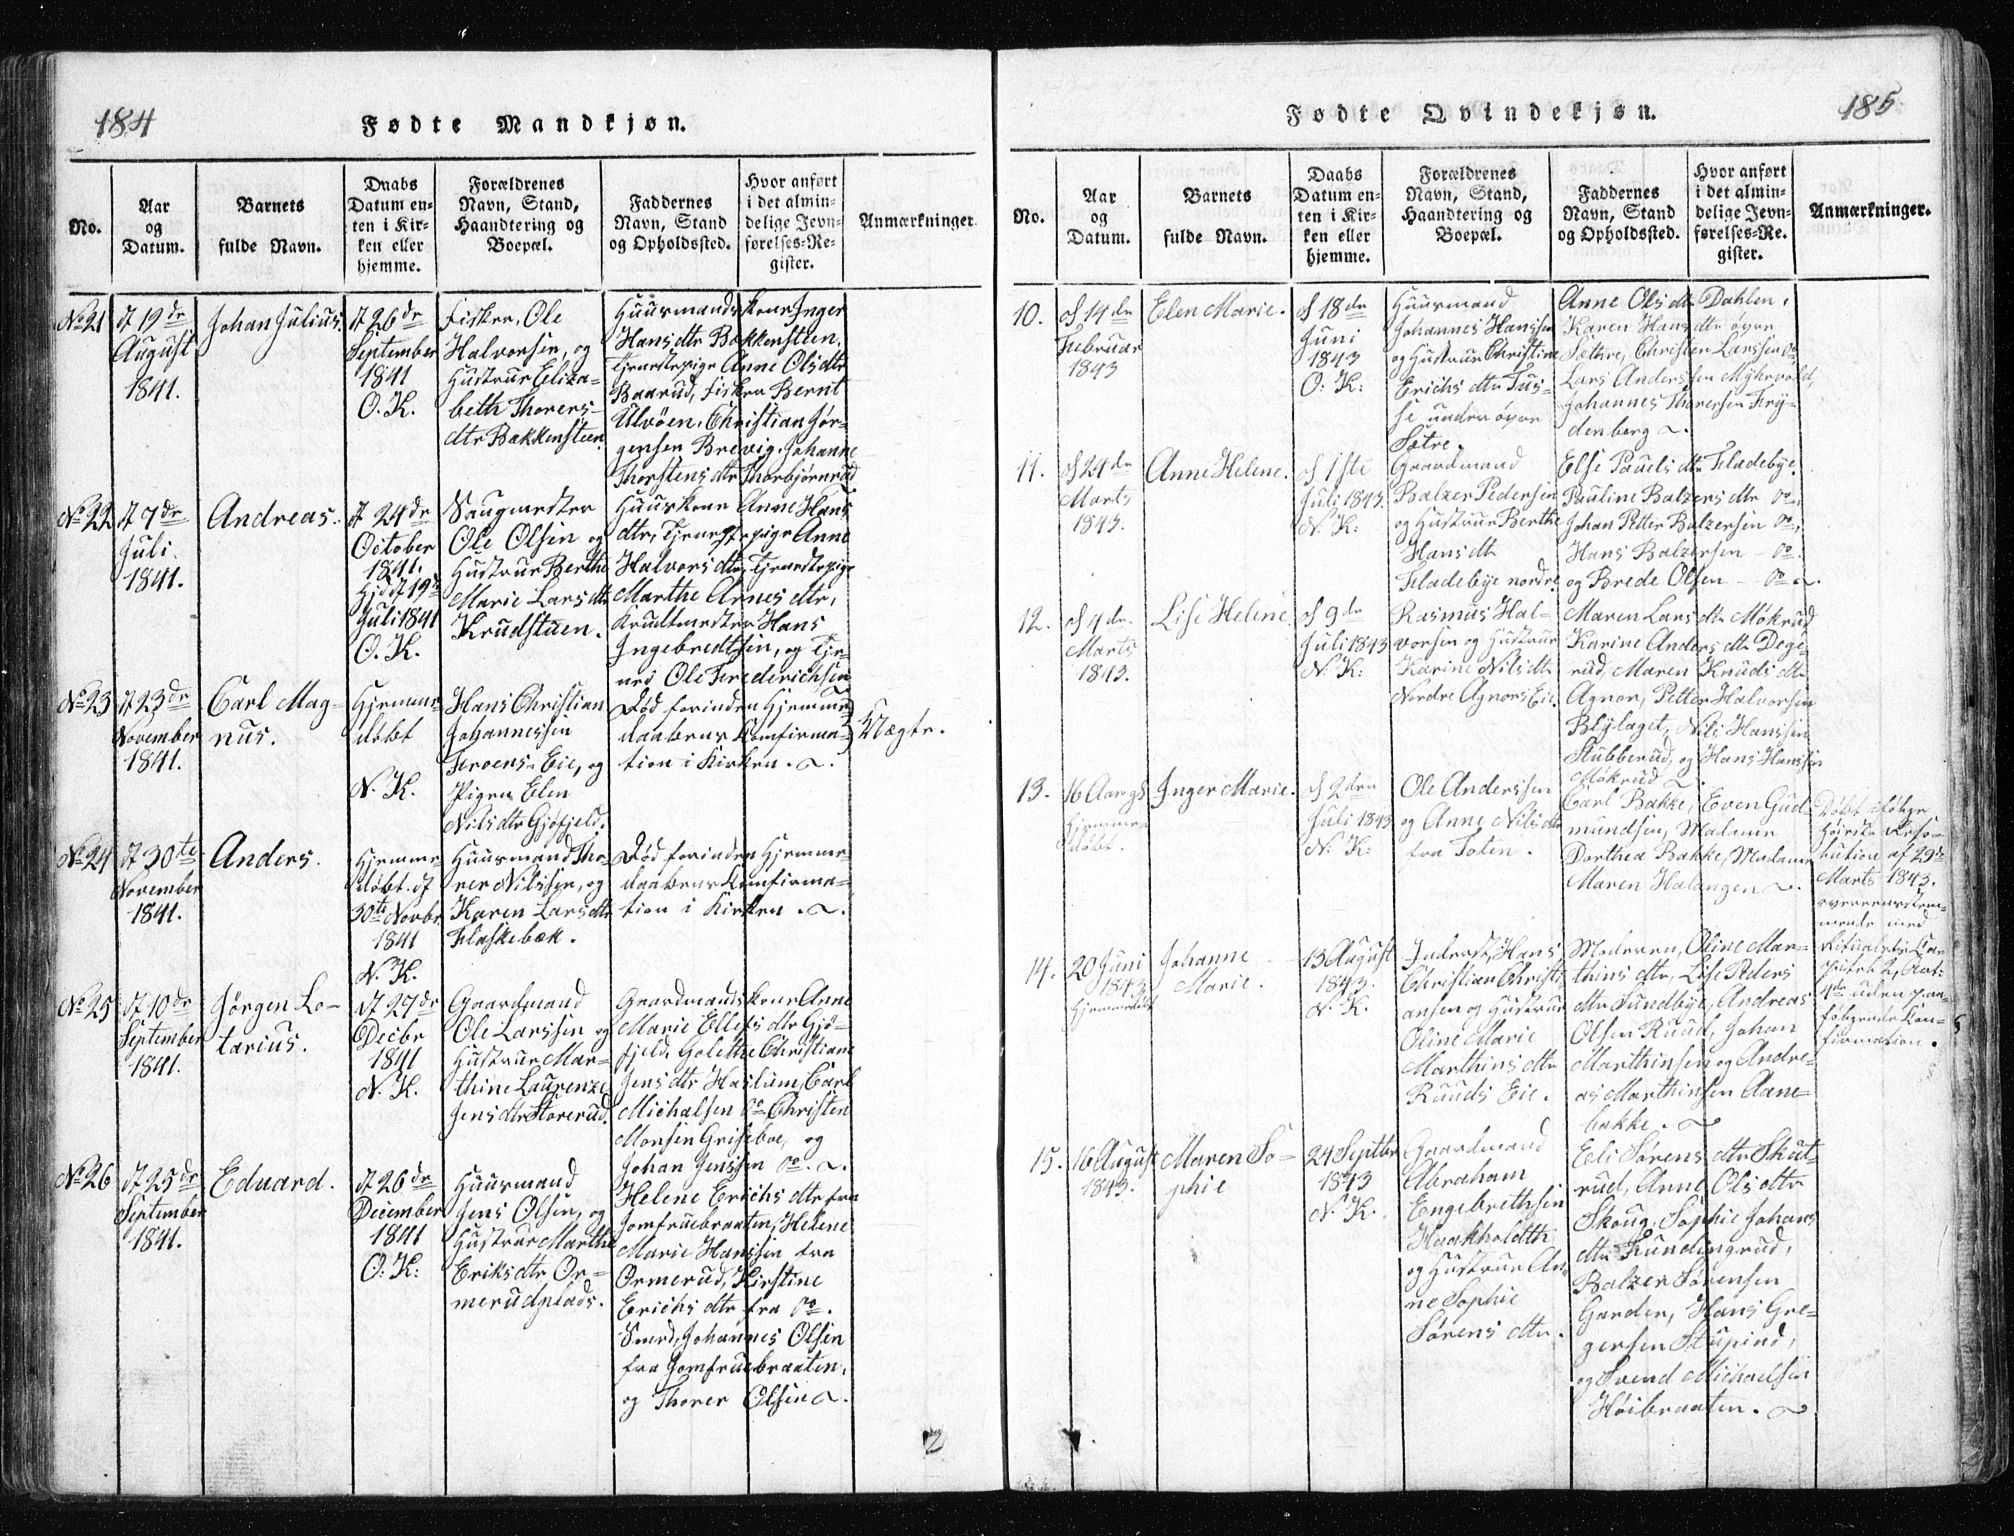 184
Fødte Mandkjøn.
No.
Aar
og
Datum.
Barnets
fulde Navn.
Daabs
Datum en-
ten i Kir-
ken eller
hjemme.
Forældrenes
Navn, Stand,
Haandtering og
Boepæl.
Faddernes
Navn, Stand
og Opholdssted.
Hvor anført
i det almin-
delige Jevn-
førelses-Re-
gister.
Anmærkninger
No 21
d 19de
August
1841.
Johan Julius.
d 26de
September
1841
O. K.
Fisker, Ole
Halvorsen, og
Hustrue Eliza-
beth Thorers-
dtr Bakkensteen
Huusmandskone Inger
Hansdtr Bakkensteen,
Tjenestepige Anne Olsdtr
Baarud, Fisker Bernt
Ulvöen, Christian Jør-
gensen Brevig, Johanne
Thorstensdtr Thorbjørnrud
No 22
d 7de
Juli.
1841.
Andreas.
d 24de
October
1841.
Hjd d 19de
Juli 1841
O. K.
Saugmester
Ole Olsen og
Hustrue Berthe
Marie Larsdtr
Krudstuen.
Huuskone Anne Hans
dtr, Tjenestepige Anne
Halvorsdtr, Tjenestepige
Marthe Arnesdtr,
Krudtmester Hans
Ingebredtsen, og Tje-
ner Ole Frederichsen
No 23
d 23de
November
1841.
Carl Mag-
nus.
Hjemme-
døbt
N. K.
Hans Christian
Johannessen
Froens-Eie, og
Pigen Elen
Nilsdtr Gjøfjeld.
Død forinden Hjemme-
daabens Confirma-
tion i Kirken.
Uægte.
No 24
d 30te
November
1841.
Anders.
Hjemme-
døbt d
30te Novbr
1841
N. K.
Huusmand Tho-
rer Nilssen, og
Karen Larsdtr
Flaskebæk.
Død forinden Hjemme-
daabens Confirma-
tion i Kirken.
No 25
d 10de
September
1841.
Jørgen Lo-
tarius.
d 27de
Decbr
1841
N. K.
Gaardmand
Ole Larssen og
Hustrue Mar-
thine Laurenze
Jensdtr Storerud.
Gaardmandskone Anne
Marie Ellefsdtr Gjø-
fjeld, Golethe Christiane
Jensdtr Haslum, Carl
Michalsen do Christen
Monsen Griseboe, og
Johan Jenssen do.
No 26
d 25de
September
1841.
Eduard.
d 26de
December
1841
O. K:
Huusmand
Jens Olsen, og
Hustrue Marthe
Eriksdtr Or-
merudplads.
Helene Erichsdtr fra
Jomfruebraaten, Helene
Marie Hanssen fra
Ormerud, Kirstine
Erichsdtr fra do.
Smed, Johannes Olsen
fra Jomfruebraaten,
og Thorer Olsen
2
185
Fødte Qvindekjøn.
No.
Aar
og
Datum.
Barnets
fulde Navn.
Daabs
Datum en-
ten i Kir-
ken eller
hjemme.
Forældrenes
Navn, Stand,
Haandtering og
Boepæl.
Faddernes
Navn, Stand
og Opholdssted.
Hvor anført
i det almin-
delige Jevn-
førelses-Re.
gister.
Anmærkninger.
10.
d 14de
Februar
1843
Elen Marie.
d 18de
Juni
1843
O: K:
Huusmand
Johannes Hanssen
og Hustrue Christine
Erichsdtr Tus-
se under øvre
Sætre.
Anne Olsdtr Dahlen,
Karen Hansdtr øvre
Sæthre, Christen Larssen do
Lars Anderssen Myhrvold,
Johannes Thoresen Fry-
denberg
11.
d 24de
Marts
1843.
Anne Helene.
d 1ste
Juli 1843.
N. K:
Gaardmand
Balzer Pedersen
og Hustrue Berthe
Hansdtr
Fladebye nordre
Else Pauelsdtr Fladebye,
Pauline Balzersdtr do,
Johan Petter Balzersen do,
Hans Balzersen - do.
og Brede Olsen - do
12.
d 4de
Marts
1843.
Lise Helene
d 9de
Juli 1843
N. K:
Rasmus Hal-
vorsen og Hustrue
Karine Nilsdtr
Nordre Agnors Eie.
Maren Larsdtr Møkrud
Karine Andersdtr Dege-
rud, Maren Knudsdtr
Agnor, Petter Halvorsen
Blylaget, Nils Hanssen
Stubberud, og Hans Hanssen
Møkrud
13.
Hjemme-
døbt.
Inger Marie.
d 2den
Juli 1843
N. K:
Ole Anderssen
og Anne Nilsdtr
fra Toten.
Carl Bakke, Even Gud-
mundsen, Madame
Dorthea Bakke, Madame
Maren Halangen
Døbt ifølge
Høieste Reso-
lution af 29de
Marts 1843.
overeensstem-
mende med
Ritualets Ca-
pitel 2, Art:
4de uden paa-
følgende Con-
firmation.
14.
20 Juni
1843
Johanne
Marie.
13 August
1843.
N. K.
Inderst, Hans
Christian Christi-
ansen og Hustrue
Oline Marie
Marthinsdtr
Ruuds Eie.
Moderen, Oline Mar-
thinsdtr, Lise Peders
dtr Sundbye, Andreas
Olsen Ruud, Johan
Marthinsen og Andre-
as Marthinsen Aane-
bakke.
15.
16 August
1843.
Maren So-
phie
24 Septbr
1843
N. K.
Gaardmand
Abraham
Engebrethsen
Haakholdth
og Hustrue An-
ne Sophie
Sørensdtr.
Eli Sørensdtr Skut-
rud, Anne Olsdtr
Skoug, Sophie Johans
dtr Kundingrud,
Balzer Sørensen
Garder, Hans Gre-
gersen Stupind,
og Svend Michaelsen
Høibraaten.